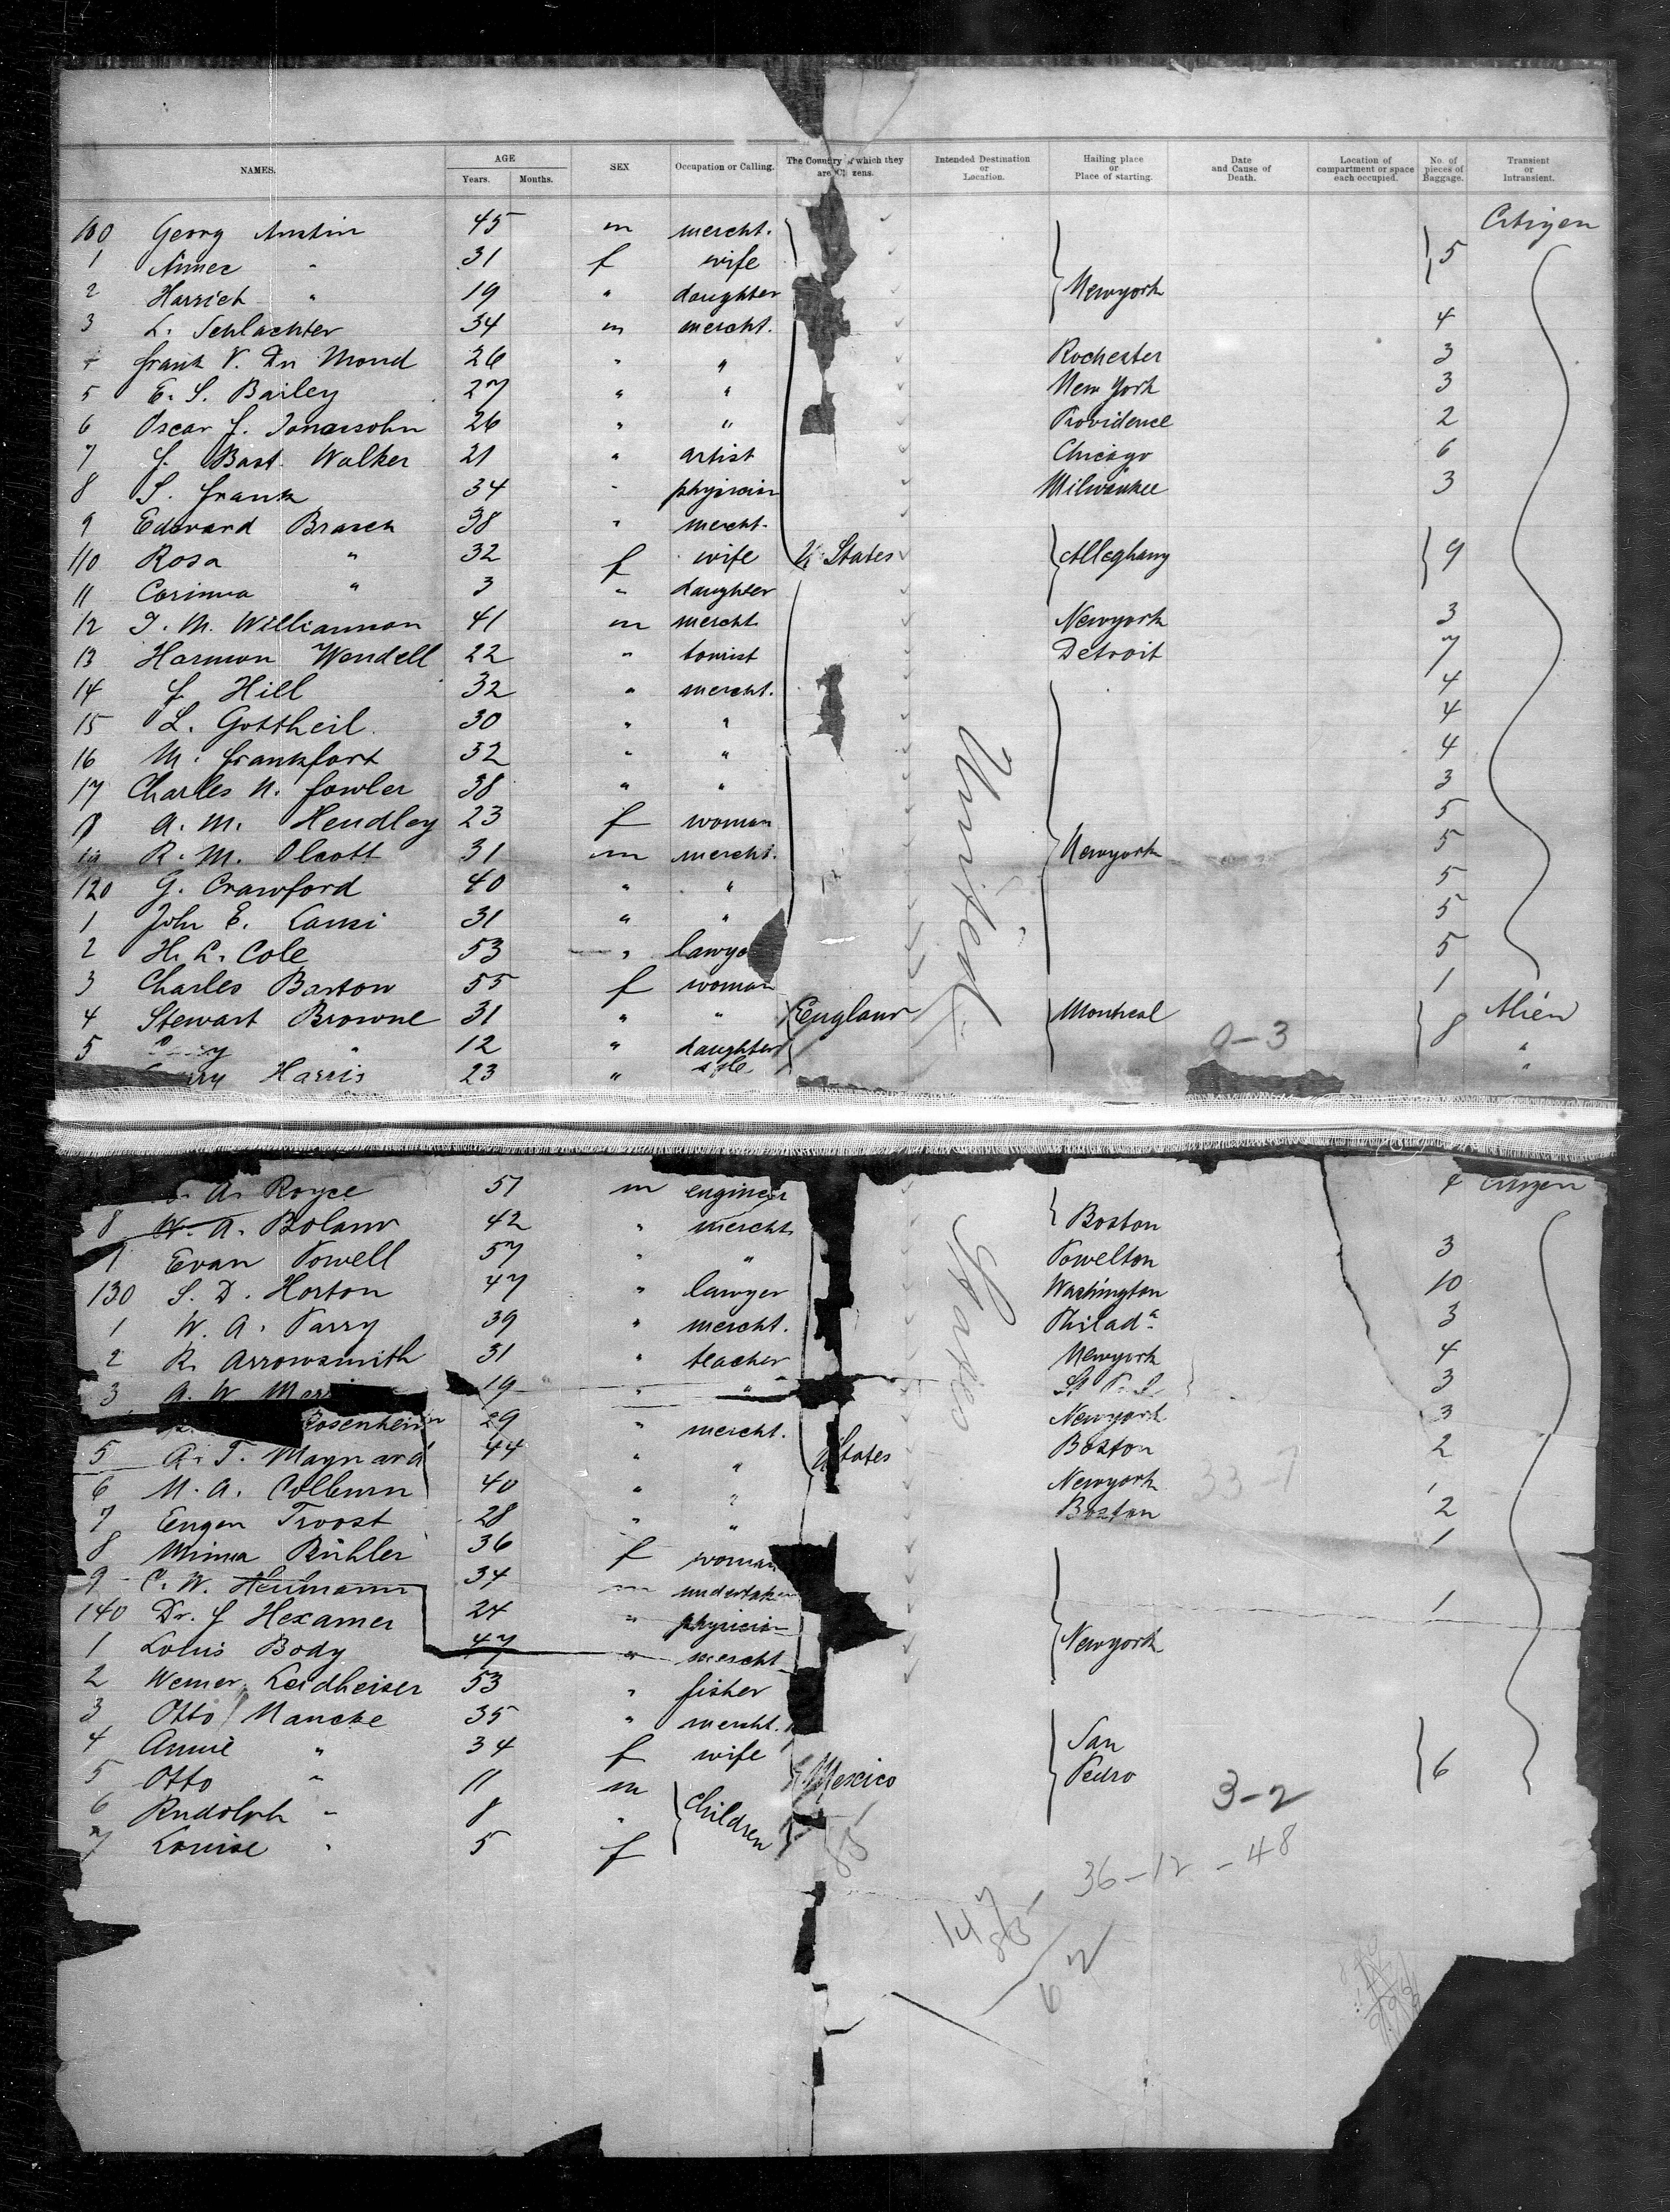 NAMES. AGE Years. Months. SEX Occupation or Calling. The Country of which they are Citizens. Intended Destination or Location. Hailing place or Place of starting. Date and Cause of Death. Location of compartment or space each occupied. No. of pieces of Baggage. Transient or Intransient.
100 Georg Austin 45 m mercht. Citizen
1 Aimee " 31 f wife 5
2 Harriet " 19 " daughter Newyork
3 L. Schlachter 34 m mercht. 4
frank V. Du Mond 26 " " Rochester 3
5 E. S. Bailey 27 " " New York 3
6 Oscar J. Jonassohn 26 " " Providence 2
7 J. Bast. Walker 21 " artist Chicago 6
8 S. frank 34 " physician Milwaukee 3
9 Edward Brasch 38 " mercht.
110 Rosa " 32 f wife U. States Alleghany 9
11 Corinna " 3 " daughter
12 T. M. Williamson 41 m mercht. Newyork 3
13 Harmon Wendell 22 " tourist Detroit 7
14 J. Hill 32 " mercht. 4
15 L. Gottheil 30 " " 4
16 M. frankfort 32 " " 4
17 Charles N. fowler 38 " " 3
A. M. Hendley 23 f woman 5
19 R. M. Olcott 31 m mercht. Newyork 5
120 G. Crawford 40 " " 5
1 John E. 31 " " 5
2 H. L. Cole 53 " lawye 5
3 Charles Barton 55 f woman 1
4 Stewart Browne 31 " " England Montreal 8 Alien
5 " 12 " daughter 0-3 "
Harris 23 " "
United
A. Royce 51 m engineer 4 Citizen
8 W. A. Bolann 42 " mercht. Boston
Evan Powell 57 " " Powelton 3
130 S. D. Horton 47 " lawyer Washington 10
1 W. A. Parry 39 " mercht. Philada. 3
2 R. Arrowsmith 31 " teacher Newyork 4
3 A. W. 19 " " 3
Rosenheim 29 " mercht. Newyork 3
5 A. T. Maynard 44 " " States Boston 2
6 M. A. Colburn 40 " " Newyork 1
7 Eugen Troost 28 " " Boston 2
8 Minna Bühler 36 f woman 1
9 C. W. Heumann 34 m undertaker
140 Dr. J Hexamer 24 " physician 1
1 Louis Body 47 " mercht Newyork
2 Werner Leidheiser 53 " fisher
3 Otto Mancke 35 " mercht.
4 Annie " 34 f wife San
5 Otto " 11 m Mexico Pedro 6
6 Rudolph " 8 " children 3-2
7 Louise " 5 f
States
85
36-12-48
147
85
62